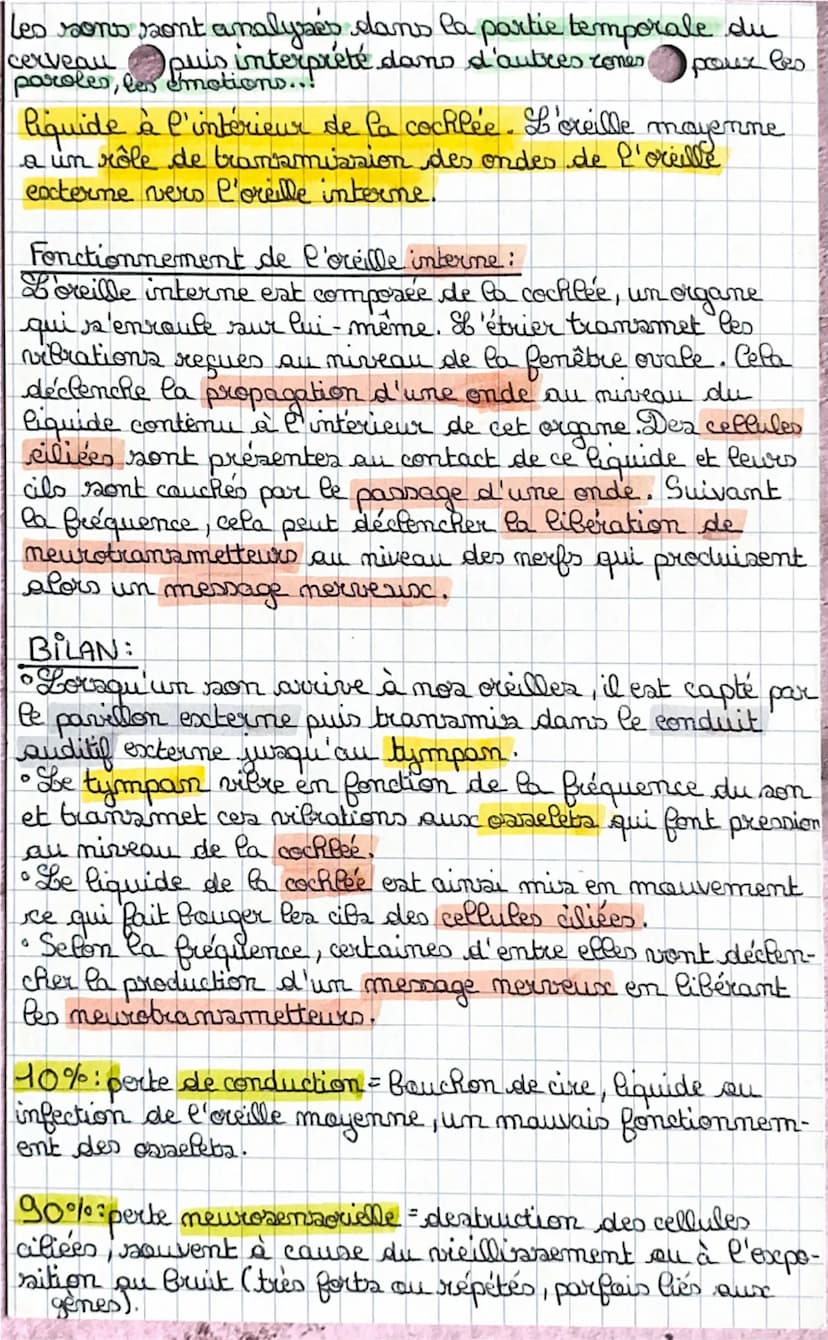 Les sons sont analysés dans la partie temporale du
cerveau puis interprété dans d'autres zones pour les
paroles, les émotions...
liquide à l'intérieur de la cochlée. L'oreille moyenne
a un rôle de transmission des ondes de l'oreille
externe vers l'oreille interne.
Fonctionnement de l'oreille interne :
L'oreille interne est composée de la cochlée, un organe
qui s'enroule sur lui-même. L'étrier transmet les
vibrations reçues au niveau de la fenêtre ovale. Cela
déclenche la propagation d'une onde au niveau du
liquide contenu à l'intérieur de cet organe. Des cellules
ciliées sont présentes au contact de ce liquide et leurs
cils sont couchés par le passage d'une onde. Suivant
la fréquence, cela peut déclencher la libération de
neurotransmetteurs au niveau des nerfs qui produisent
alors un message nerveux.
BILAN :
• Lorsqu'un son arrive à nos oreilles, il est capté par
le pavillon externe puis transmis dans le conduit
auditif externe jusqu'au tympan.
• Le tympan vibre en fonction de la fréquence du son
et transmet ces vibrations aux osselets qui font pression
au niveau de la cochleé.
• Le liquide de la cochlée est ainsi mis en mouvement
ce qui fait bouger les cils des cellules ciliées.
• Selon la fréquence, certaines d'entre elles vont déclen-
cher la production d'un message nerveux en libérant
les neurotransmetteurs.
10% : perte de conduction = Bouchon de cire, liquide ou
infection de l'oreille moyenne, un mauvais fonctionnem-
ent des osselets.
90% : perte neurosensorielle = destruction des cellules
ciliées, souvent à cause du vieillissement ou à l'expo-
sition au bruit (très forts ou répétés, parfois liés aux
gênes).